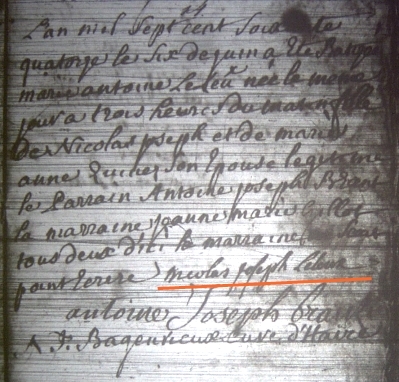 L'an mil sept cent soixante
quatorze le six de juin a ete Batisee
marie antoine Leleu née le meme
jour a trois heures du matin fille
de Nicolas joseph et de marie
anne son Epouse legitime
le Parrain Antoine joseph Brant
la marraine jeanne marie billot
tous deux d'ici la marraine
point ecrire nicolas joseph Leleu
antoine Joseph brant
curé d'